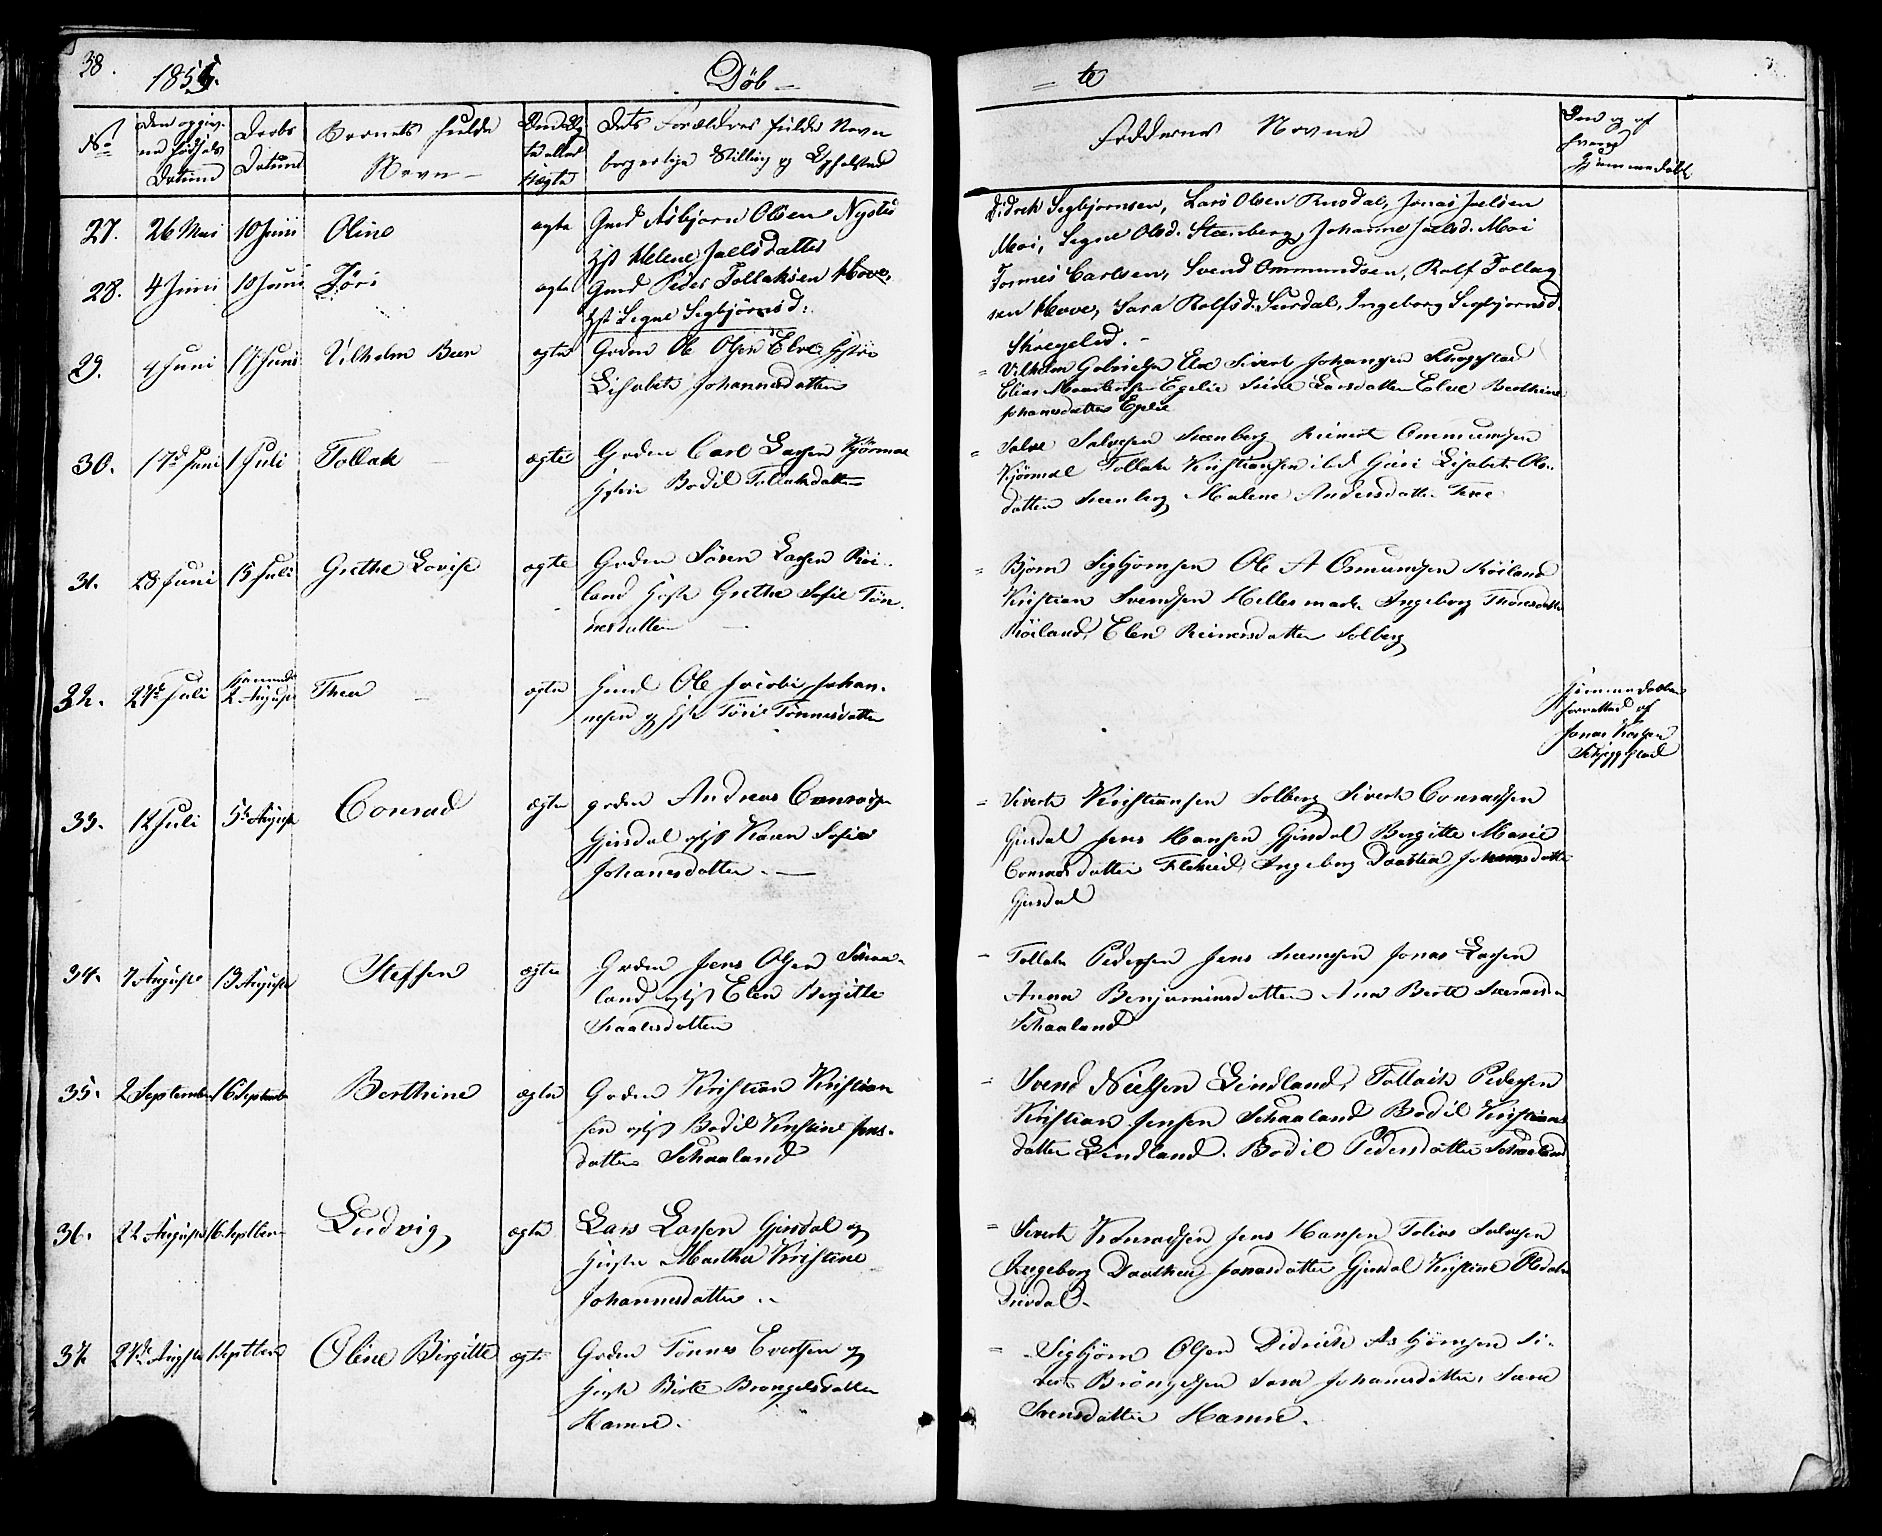 38.
1855.
Døb-
-te
No
Den opgiv-
ne Fødsels
Datum
Daabs
Datum
Barnets fulde
Navn-
ægte
Dets Forældres fulde Navn
borgerlige Stilling og Opholdsted
Faddernes Navne
Hjemmedøbt
27. 26 Mai 10 Juni Oline ægte Gmd Asbjørn Olsen Nysted
Hst Helene Joelsdatter
Didrek Segbjørnsen, Lars Olsen Rusdal, Jonas Joelsen
Moi, Segne Olsd. Steenberg, Johanne Joelsd. Moi
28. 4 Juni 10 Juni Tøri ægte Gmd Peder Tollaksen Hove,
Hst Segne Segbjørnsd:
Tonnes Carlsen, Svend Ommundsen, Rolf Tollag
sen Hove, Sara Rolfsd. Surdal, Ingeborg Segbjørnsd.
Skregelid.-
29. 4 Juni 17 Juni Vilhelm Been ægte Grdm Ole Olsen Elve Hstru
Lisabet Johannesdatter
- Vilhelm Gabrielsen Elve Sivert Johansen Skogestad
Elias Mauritsen Egelie Sirie Larsdatter Elve Berthine
Johanesdatter Egelie
30. 17d Juni 1 Juli Tollak ægte Grdm Carl Larsen Kjørmoe
Hstrue Bodil Tollaksdatter
= Salve Salvesen Steenberg Reinert Ommundsen
Kjørmoe Tollak Kristiansen ibd Guri Lisabet Ols-
datter Steenberg Malene Andersdatter Tree
31. 28 Juni 15 Juli Grethe Lovise ægte Grdm Søren Larsen Røi-
land Hst Grethe Sofie Tøn-
nesdatter
- Bjørn Sigbjørnsen Ole A Osmundsen Røiland
Kristian Svendsen Hellesmark Ingeborg Thoresdatter
Røiland, Elen Reinertsdatter Solberg
32. 27de Juli Hjemmed 2 August Thea - ægte Gmd Ole Jacob Johan-
nesen og Hst Tøri Tønnesdatter
Hjemmedøbt
forrettet af
Jonas Larsen
Skoggestad
33. 12 Juli 5te August Conrad ægte grdm Andreas Conradsen
Gjusdal og Hst Karen Sofie
Johanesdatter. -
- Sivert Kristiansen Solberg Sivert Conradsen
Gjusdal Jens Hansen Gjusdal Bergitte Marie
Conradsdatter Flikeid, Ingeborg Dorthea Johannesdatter
Gjusdal
34. 7 August 13 August Steffen ægte Grdm Jens Olsen Skaa-
land og Hst Elen Birgitte
Skaalesdatter
- Tollak Pedersen Jens Steensen Jonas Larsen
Anna Benjaminsdatter Ane Berte Steensda
Skaaland
35. 2 September 16 September Berthine ægte Grdm Kristian Kristian
sen og Hst Bodil Kirstine Jens-
datter Skaaland
- Svend Nielsen Lindland, Tollack Pedersen
Kristian Jensen Skaaland Bodil Kristians
datter Lindland. Bodil Pedersdatter Skaaland
36. 22 August 16 Septber Ludvig ægte Lars Larsen Gjusdal og
Hustru Martha Kristine
Johannesdatter. -
= Sivert Konradsen Jens Hansen Tobias Salvesen
Ingeborg Dorthea Jonasdatter Gjusdal Kristine Olsdatter
Surdal.
37. 27de August 1 Septber Oline Birgitte ægte Grdm Tønnes Evertsen og
Hustr Birte Brongelsdatter
Hamre.
= - Sigbjørn Olsen Didrick Asbjørnsen Si-
vert Brøngelsen Sara Johanesdatter, Sara
Svensdatter Hamre.